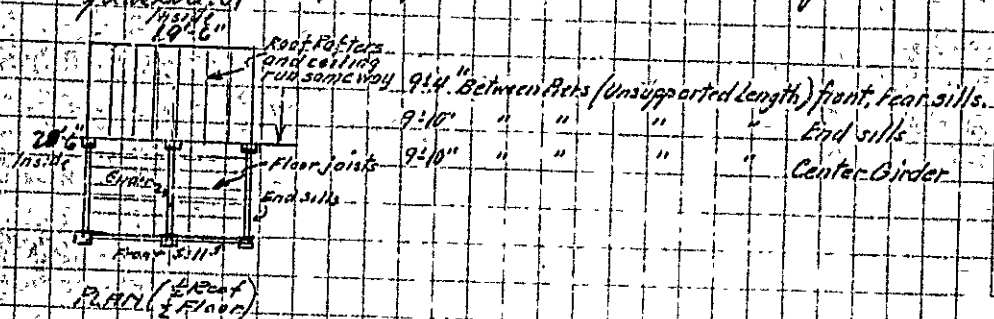 Inside
19'-6"
Roof Rafters
and ceiling
run same way
9'-4" Between Piers (Unsupported Length) front, rear sills.
9'-10" " " " " End sills
9'-10" " " " " Center Girder
20'-6"
Inside
Floor joists
Girder
End sills
Front sills
PLAN (½ Roof
½ Floor)